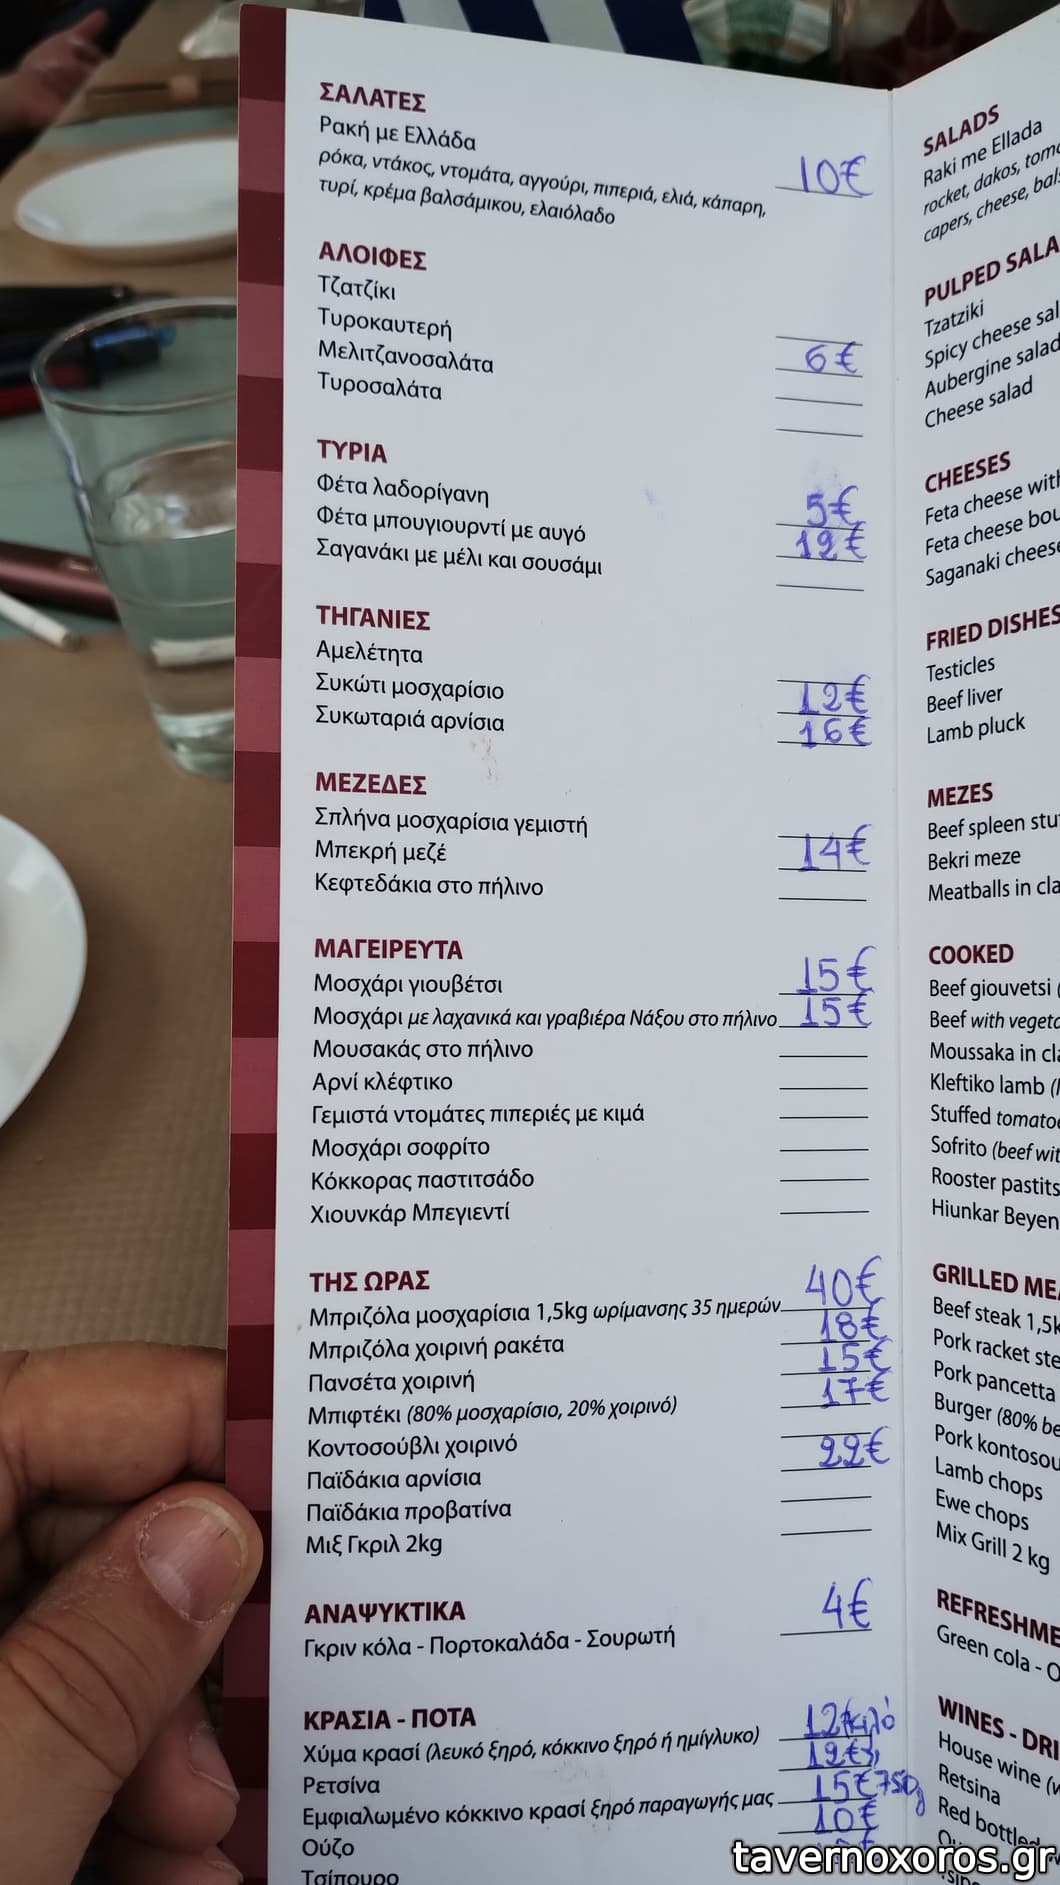 ΣΑΛΑΤΕΣ
Ρακή με Ελλάδα
ρόκα, ντάκος, ντομάτα, αγγούρι, πιπεριά, ελιά, κάπαρη, 10€
τυρί, κρέμα βαλσάμικου, ελαιόλαδο
ΑΛΟΙΦΕΣ
Τζατζίκι
Τυροκαυτερή 6€
Μελιτζανοσαλάτα
Τυροσαλάτα
ΤΥΡΙΑ
Φέτα λαδορίγανη 5€
Φέτα μπουγιουρντί με αυγό 12€
Σαγανάκι με μέλι και σουσάμι
ΤΗΓΑΝΙΕΣ
Αμελέτητα
Συκώτι μοσχαρίσιο 12€
Συκωταριά αρνίσια 16€
ΜΕΖΕΔΕΣ
Σπλήνα μοσχαρίσια γεμιστή
Μπεκρή μεζέ 14€
Κεφτεδάκια στο πήλινο
ΜΑΓΕΙΡΕΥΤΑ
Μοσχάρι γιουβέτσι 15€
Μοσχάρι με λαχανικά και γραβιέρα Νάξου στο πήλινο 15€
Μουσακάς στο πήλινο
Αρνί κλέφτικο
Γεμιστά ντομάτες πιπεριές με κιμά
Μοσχάρι σοφρίτο
Κόκκορας παστιτσάδο
Χιουνκάρ Μπεγιεντί
ΤΗΣ ΩΡΑΣ
Μπριζόλα μοσχαρίσια 1,5kg ωρίμανσης 35 ημερών 40€
Μπριζόλα χοιρινή ρακέτα 18€
Πανσέτα χοιρινή 15€
Μπιφτέκι (80% μοσχαρίσιο, 20% χοιρινό) 17€
Κοντοσούβλι χοιρινό
Παϊδάκια αρνίσια 22€
Παϊδάκια προβατίνα
Μιξ Γκριλ 2kg
ΑΝΑΨΥΚΤΙΚΑ
Γκριν κόλα - Πορτοκαλάδα - Σουρωτή 4€
ΚΡΑΣΙΑ - ΠΟΤΑ
Χύμα κρασί (λευκό ξηρό, κόκκινο ξηρό ή ημίγλυκο) 12€κιλό
Ρετσίνα 12€
Εμφιαλωμένο κόκκινο κρασί ξηρό παραγωγής μας 15€ 750g
Ούζο 10€
Τσίπουρο
SALADS
Raki me Ellada
rocket, dakos,
capers, cheese,
PULPED
Tzatziki
Spicy cheese
Aubergine
Cheese salad
CHEESES
Feta cheese
Feta cheese
Saganaki
FRIED DISHES
Testicles
Beef liver
Lamb pluck
MEZES
Beef spleen
Bekri meze
Meatballs in
COOKED
Beef giouvetsi
Beef with
Moussaka in
Kleftiko lamb
Stuffed
Sofrito (beef
Rooster
Hiunkar
GRILLED
Beef steak
Pork racket
Pork pancetta
Burger (80%
Pork
Lamb chops
Ewe chops
Mix Grill 2 kg
Green cola -
WINES -
House wine
Retsina
Red
tavernoxoros.gr